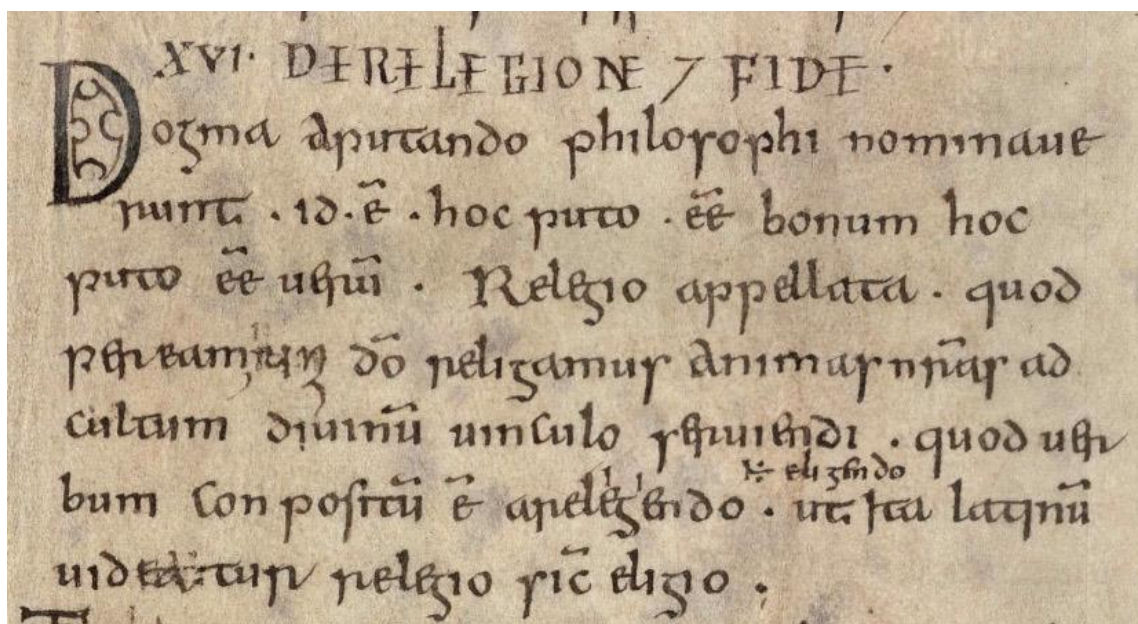 XVI· DE RELEGIONE ⁊ FIDE·
Dogma aputando philosophi nominaue
runt · id · ē · hoc puto · eē bonum hoc
puto eē uerūi · Relegio appellata · quod
per eam dō religamus animas nr̄as ad
cultum diuinū uinculo seruiendi · quod uer
ł eligendo
bum conpositū ē arelegendo · ut ita latinū
uideatur relegio sic̄ eligio ·